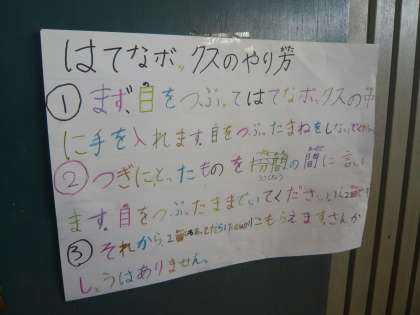 はてなボックスのやり方
①まず、目をつぶってはてなボックスの中
に手を入れます。目をつぶったまねをしない
②つぎにとったものを の間に言い
ます。目をつぶったままでいてください。
③それから、2 もらえます。さんか
しょうはありません。